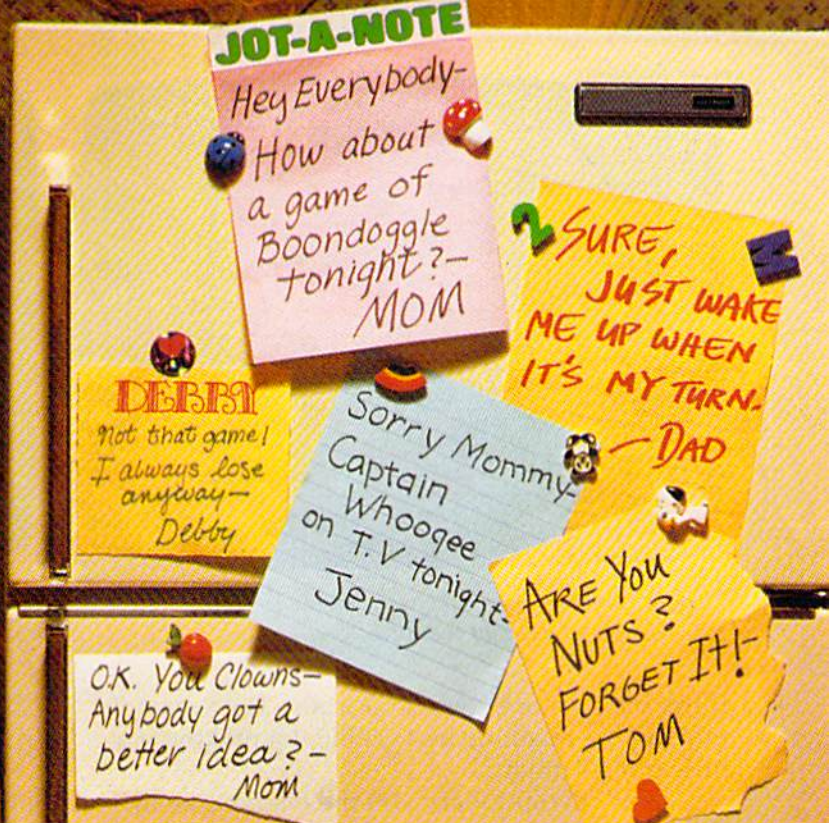 JOT-A-NOTE
Hey Everybody-
How about
a game of
Boondoggle
tonight?-
MOM
SURE,
JUST WAKE
ME UP WHEN
IT'S MY TURN.
- DAD
DEBBY
Not that game!
I always lose
anyway-
Debby
Sorry Mommy-
Captain
Whooqee
on T.V tonight-
Jenny
ARE YOU
NUTS?
FORGET IT!-
TOM
O.K. You Clowns-
Anybody got a
better idea?-
Mom
2
M